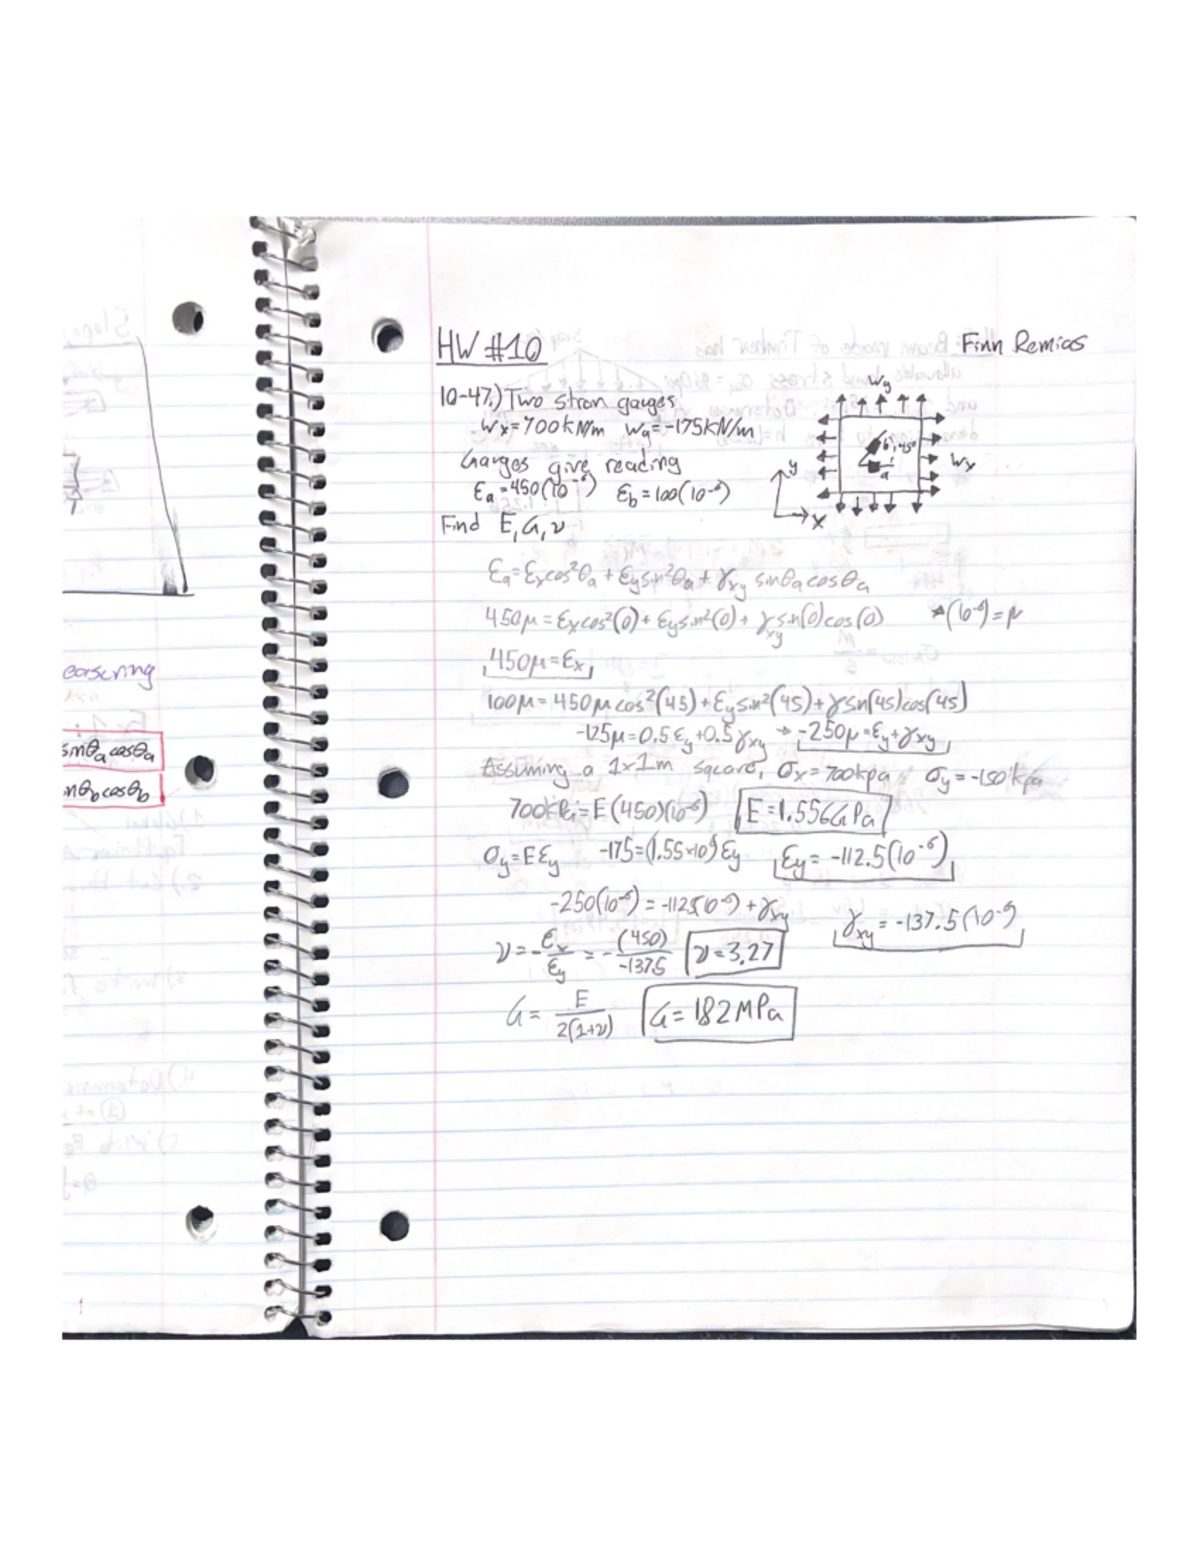 easuring
sinθₐcosθₐ
nθ_b cosθ_b
HW #10
Finn Remias
10-47.) Two stran gauges
Wx=700kN/m Wy=-175kN/m
Gauges give reading
εa=450(10⁻⁶) εb=100(10⁻⁶)
Find E, G, ν
Wy
Wx
b, 45°
a
y
x
εa=εxcos²θa+εysin²θa+γxy sinθa cosθa
450μ=εxcos²(0)+εysin²(0)+γxy sin(0)cos(0) *(10⁻⁶)=μ
450μ=εx
100μ=450μcos²(45)+εysin²(45)+γsin(45)cos(45)
-125μ=0.5εy+0.5γxy → -250μ=εy+γxy
Assuming a 1x1m square, σx=700kpa σy=-150kpa
700kPa=E(450)(10⁻⁶) E=1.556GPa
σy=Eεy -175=(1.55×10⁹)εy εy=-112.5(10⁻⁶)
-250(10⁻⁶)=-112.5(10⁻⁶)+γxy γxy=-137.5(10⁻⁶)
ν=-εx/εy=-(450)/-137.5 ν=3.27
G=E/2(1+ν) G=182MPa